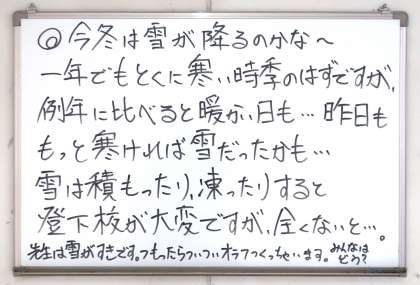 ◎今冬は雪が降るのかな〜
一年でもとくに寒い時季のはずですが、
例年に比べると暖かい日も…昨日も
もっと寒ければ雪だったかも…
雪は積もったり、凍ったりすると
登下校が大変ですが、全くないと…。
先生は雪がすきです。つもったらついついオラフつくっちゃいます。みんなは
どう?